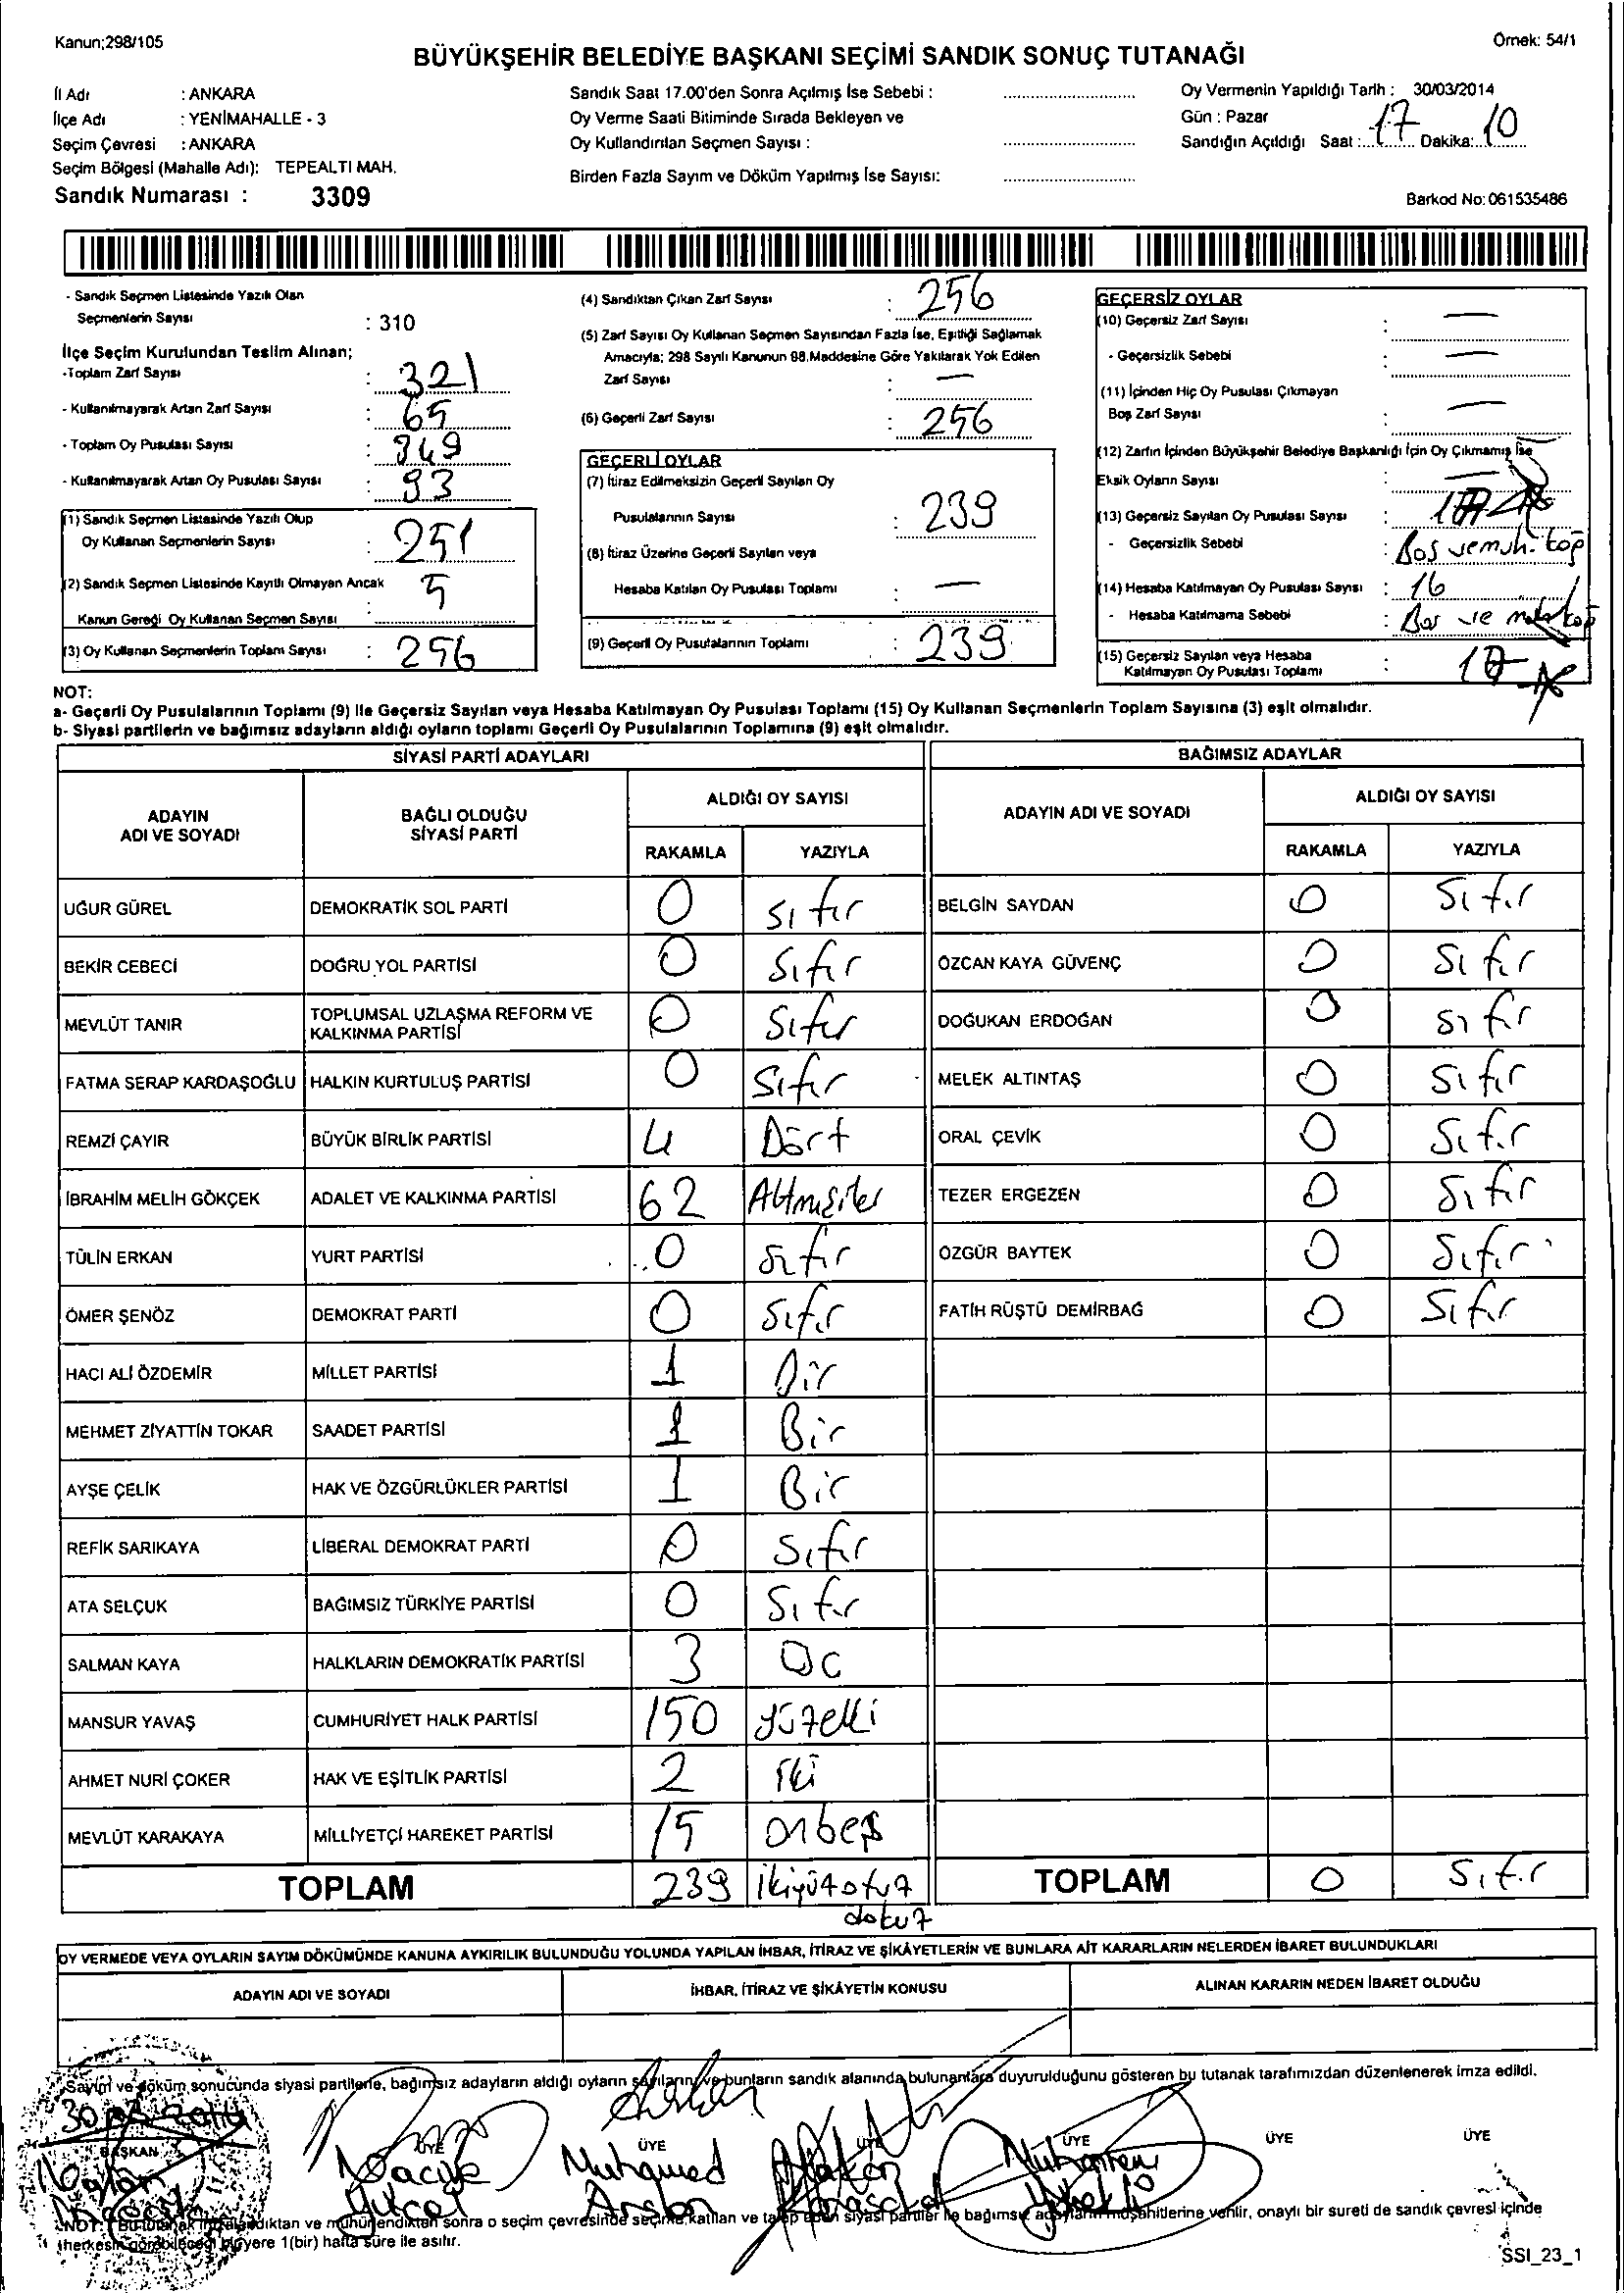 Kanun;298/105
Örnek: 54/1
BÜYÜKŞEHİR BELEDİYE BAŞKANI SEÇİMİ SANDIK SONUÇ TUTANAĞI
İl Adı : ANKARA
İlçe Adı : YENİMAHALLE - 3
Seçim Çevresi : ANKARA
Seçim Bölgesi (Mahalle Adı): TEPEALTI MAH.
Sandık Numarası : 3309
Sandık Saat 17.00'den Sonra Açılmış İse Sebebi :
Oy Verme Saati Bitiminde Sırada Bekleyen ve
Oy Kullandırılan Seçmen Sayısı :
Birden Fazla Sayım ve Döküm Yapılmış İse Sayısı:
Oy Vermenin Yapıldığı Tarih : 30/03/2014
Gün : Pazar
Sandığın Açıldığı Saat : 17 Dakika: 10
Barkod No: 061535486
- Sandık Seçmen Listesinde Yazılı Olan
Seçmenlerin Sayısı : 310
İlçe Seçim Kurulundan Teslim Alınan;
-Toplam Zarf Sayısı : 321
- Kullanılmayarak Artan Zarf Sayısı : 65
- Toplam Oy Pusulası Sayısı : 349
- Kullanılmayarak Artan Oy Pusulası Sayısı : 93
(1) Sandık Seçmen Listesinde Yazılı Olup
Oy Kullanan Seçmenlerin Sayısı : 251
(2) Sandık Seçmen Listesinde Kayıtlı Olmayan Ancak
Kanun Gereği Oy Kullanan Seçmen Sayısı : 5
(3) Oy Kullanan Seçmenlerin Toplam Sayısı : 256
(4) Sandıktan Çıkan Zarf Sayısı : 256
(5) Zarf Sayısı Oy Kullanan Seçmen Sayısından Fazla İse, Eşitliği Sağlamak
Amacıyla; 298 Sayılı Kanunun 98.Maddesine Göre Yakılarak Yok Edilen
Zarf Sayısı : —
(6) Geçerli Zarf Sayısı : 256
GEÇERLİ OYLAR
(7) İtiraz Edilmeksizin Geçerli Sayılan Oy
Pusulalarının Sayısı : 239
(8) İtiraz Üzerine Geçerli Sayılan veya
Hesaba Katılan Oy Pusulası Toplamı : —
(9) Geçerli Oy Pusulalarının Toplamı : 239
GEÇERSİZ OYLAR
(10) Geçersiz Zarf Sayısı : —
- Geçersizlik Sebebi : —
(11) İçinden Hiç Oy Pusulası Çıkmayan
Boş Zarf Sayısı : —
(12) Zarfın İçinden Büyükşehir Belediye Başkanlığı İçin Oy Çıkmamış İse
Eksik Oyların Sayısı : —
(13) Geçersiz Sayılan Oy Pusulası Sayısı :
- Geçersizlik Sebebi : Boş ve
(14) Hesaba Katılmayan Oy Pusulası Sayısı : 16
- Hesaba Katılmama Sebebi : Boş ve
(15) Geçersiz Sayılan veya Hesaba
Katılmayan Oy Pusulası Toplamı :
NOT:
a- Geçerli Oy Pusulalarının Toplamı (9) ile Geçersiz Sayılan veya Hesaba Katılmayan Oy Pusulası Toplamı (15) Oy Kullanan Seçmenlerin Toplam Sayısına (3) eşit olmalıdır.
b- Siyasi partilerin ve bağımsız adayların aldığı oyların toplamı Geçerli Oy Pusulalarının Toplamına (9) eşit olmalıdır.
SİYASİ PARTİ ADAYLARI
ADAYIN ADI VE SOYADI
BAĞLI OLDUĞU SİYASİ PARTİ
ALDIĞI OY SAYISI
RAKAMLA YAZIYLA
UĞUR GÜREL DEMOKRATİK SOL PARTİ 0 sıfır
BEKİR CEBECİ DOĞRU YOL PARTİSİ 0 sıfır
MEVLÜT TANIR TOPLUMSAL UZLAŞMA REFORM VE KALKINMA PARTİSİ 0 sıfır
FATMA SERAP KARDAŞOĞLU HALKIN KURTULUŞ PARTİSİ 0 sıfır
REMZİ ÇAYIR BÜYÜK BİRLİK PARTİSİ 4 Dört
İBRAHİM MELİH GÖKÇEK ADALET VE KALKINMA PARTİSİ 62 Altmışiki
TÜLİN ERKAN YURT PARTİSİ 0 sıfır
ÖMER ŞENÖZ DEMOKRAT PARTİ 0 sıfır
HACI ALİ ÖZDEMİR MİLLET PARTİSİ 1 Bir
MEHMET ZİYATTİN TOKAR SAADET PARTİSİ 1 Bir
AYŞE ÇELİK HAK VE ÖZGÜRLÜKLER PARTİSİ 1 Bir
REFİK SARIKAYA LİBERAL DEMOKRAT PARTİ 0 sıfır
ATA SELÇUK BAĞIMSIZ TÜRKİYE PARTİSİ 0 sıfır
SALMAN KAYA HALKLARIN DEMOKRATİK PARTİSİ 3 Üç
MANSUR YAVAŞ CUMHURİYET HALK PARTİSİ 150 yüzelli
AHMET NURİ ÇOKER HAK VE EŞİTLİK PARTİSİ 2 iki
MEVLÜT KARAKAYA MİLLİYETÇİ HAREKET PARTİSİ 15 onbeş
TOPLAM 239 ikiyüzotuz
dokuz
BAĞIMSIZ ADAYLAR
ADAYIN ADI VE SOYADI
ALDIĞI OY SAYISI
RAKAMLA YAZIYLA
BELGİN SAYDAN 0 sıfır
ÖZCAN KAYA GÜVENÇ 0 sıfır
DOĞUKAN ERDOĞAN 0 sıfır
MELEK ALTINTAŞ 0 sıfır
ORAL ÇEVİK 0 sıfır
TEZER ERGEZEN 0 sıfır
ÖZGÜR BAYTEK 0 sıfır
FATİH RÜŞTÜ DEMİRBAĞ 0 sıfır
TOPLAM 0 sıfır
OY VERMEDE VEYA OYLARIN SAYIM DÖKÜMÜNDE KANUNA AYKIRILIK BULUNDUĞU YOLUNDA YAPILAN İHBAR, İTİRAZ VE ŞİKÂYETLERİN VE BUNLARA AİT KARARLARIN NELERDEN İBARET BULUNDUKLARI
ADAYIN ADI VE SOYADI
İHBAR, İTİRAZ VE ŞİKÂYETİN KONUSU
ALINAN KARARIN NEDEN İBARET OLDUĞU
Sayım ve döküm sonucunda siyasi partilerle, bağımsız adayların aldığı oyların sayılarını ve bunların sandık alanında bulunanlara duyurulduğunu gösteren bu tutanak tarafımızdan düzenlenerek imza edildi.
30.03.2014
BAŞKAN ÜYE ÜYE ÜYE ÜYE ÜYE ÜYE
Muhamed
Arslan
Yücel
NOT: Bu tutanak imzalandıktan ve mühürlendikten sonra o seçim çevresinde seçime katılan ve talep eden siyasi partiler ile bağımsız adayların müşahitlerine verilir, onaylı bir sureti de sandık çevresi içinde
herkesin görebileceği bir yere 1(bir) hafta süre ile asılır.
SSI_23_1